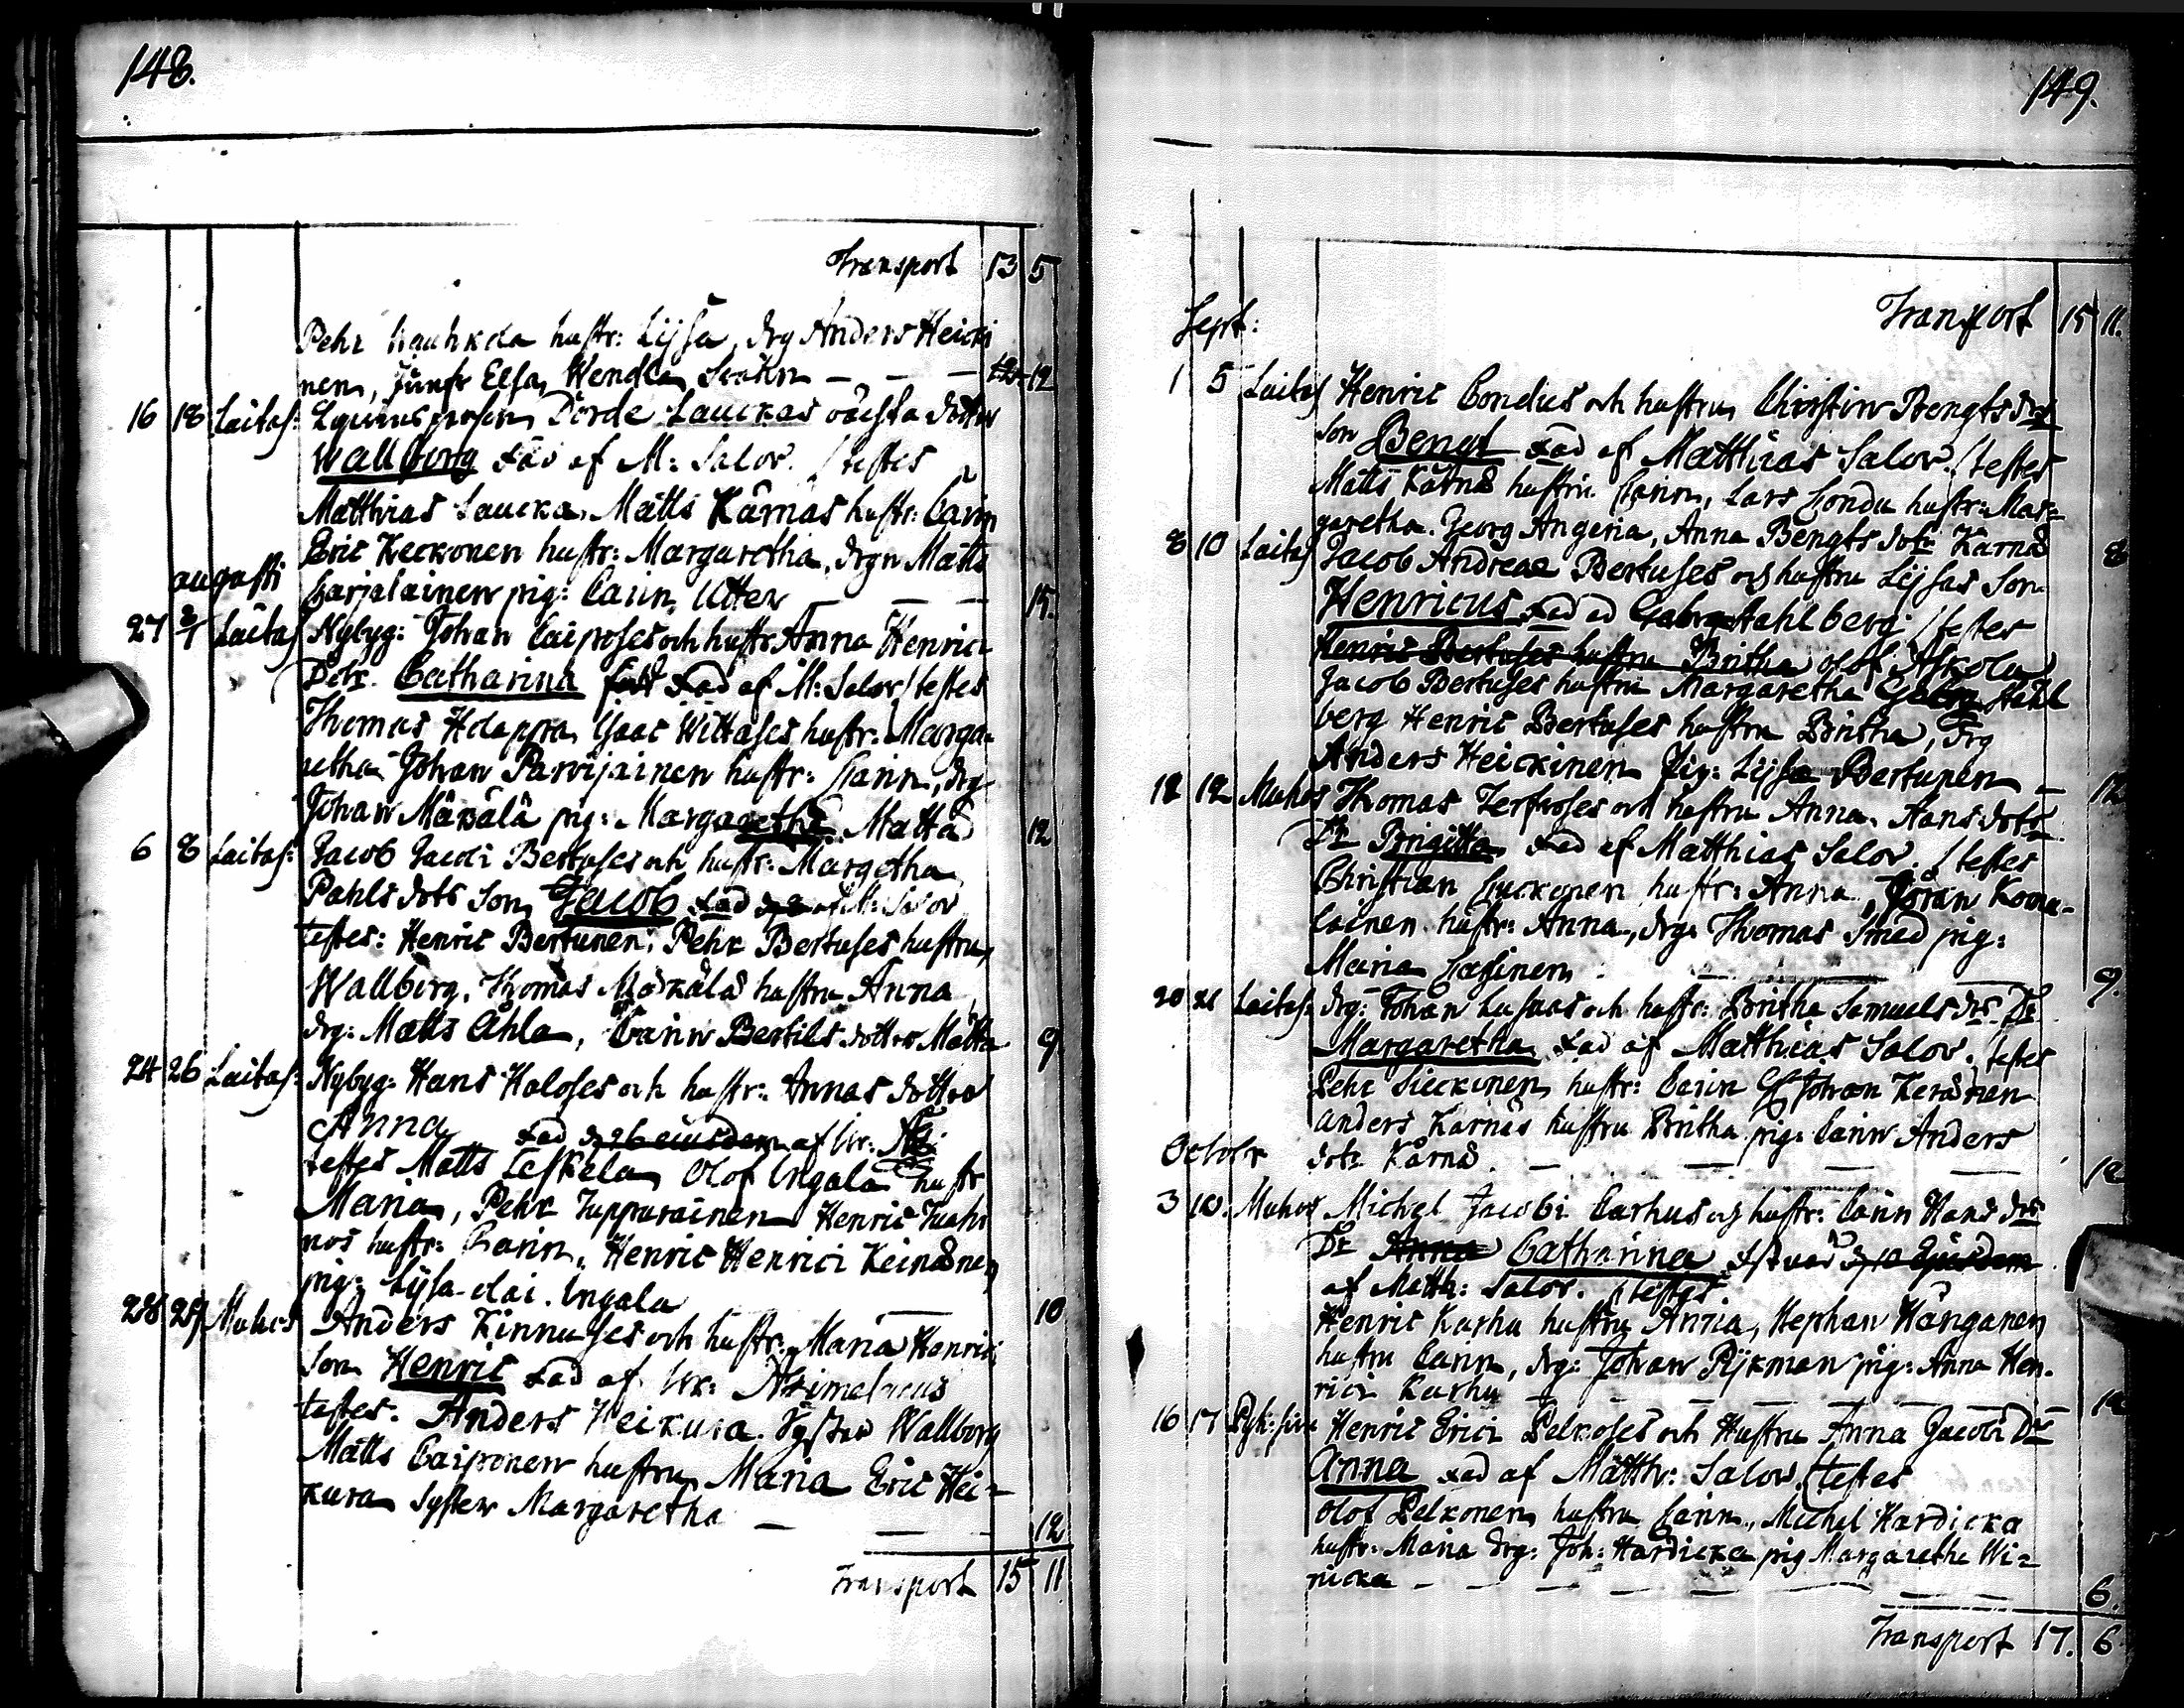 148.
Transport 13 5
Pehr hustr: Lijsa, drg Anders Heicki
nen, Jünfr Elsa, Wendla - - - 12
16 18 Laitas: Dörde Lauckas dotter
Wallborg död af M: Salov. / testes
Matthias Laucka, Matts Kärnäs hustr: Carin
Eric Keckonen hustr: Margaretha, drgn Matts
augusti
Harjalainen pig: Carin Utter - - - 15.
27 2/1 Laitas Nybyg: Johan Caiposes och hustr Anna Henrici
Dotr. Catharina död af M: Salov / testes
Thomas Holappa, Isaac Wittases hustr: Marga-
retha Johan Parvijainen hustr: Carin, drg
Johan Määälä pig: Margaretha Matta 12
6 8 Laitas: Jacob Jacobi Bertuses och hustr: Margetha
Pahls dotr Son Jacob död d 8 af M: Salov
testes: Henric Bertunen, Pehr Bertuses hustru
Wallborg, Thomas Määälä hustru Anna
drg: Matts Ahla, Carin Bertils dotter Mätta 9
24 26 Laitas: Nybyg: Hans Haloses och hustr: Annas dotter
Anna död d 26 eiusdem af Hr:
testes Matts Leskela Olof Ungala hustr
Maria, Pehr Juppurainen Henric
nos hustr: Carin, Henric Henrici Keinänen
pig: Lijsa Ungala 10
28 29 Muhos Anders Kinnuses och hustr: Maria Henrici
Son Henric död af Hr: Aximelaeus
testes. Anders Heikura Syster Wallborg
Matts Caiponen hustru Maria Eric Hei-
kura Syster Margaretha - - - 12
Transport 15 11
149.
Transport 15 11.
Sept:
1 5 Laitas Henric Condus och hustru Christin Bengts dotr
Son Bengt död af Matthias Salov. / testes
Matts Kärnä hustru Carin, Lars Condu hustr: Mar-
garetha. Georg Angeria, Anna Bengts dotr Kärnä 8
8 10 Laitas Jacob Andreae Bertuses och hustru Lijsas Son
Henricus död ad Gabr Stahlberg / testes
Henric Bertuses hustru Britha Olof Askola
Jacob Bertuses hustru Margaretha Gabr Stahl
berg Henric Bertuses hustru Britha, Drg
Anders Heickinen Pig: Lijsa Bertunen - 12
12 12 Muhos Thomas och hustru Anna Hans dotr
Dr Brigitta död af Matthias Salov. / testes
Christian Huckonen hustr: Anna, Jöran Komu-
lainen hustr: Anna, drg: Thomas Smed pig:
Maria Cassinen - 9.
20 21 Laitas: drg: Johan och hustr: Britha Samuels dr Dr
Margaretha död af Matthias Salov. / testes
Pehr Sieckinen hustr: Carin Johan Keränen
Anders Kärnäs hustru Britha pig: Carin Anders
Octobr dotr Kärnä. - - - 12
3 10. Muhos Michel Jacobi Carhus och hustr: Carin Hans dotr
Dr Anna Catharina d 10 Ejusdem
af Matth: Salov. / testes
Henric Karhu hustru Anna, Stephan Hänganen
hustru Carin, drg: Johan Pijkman pig: Anna Hen-
rici Karhu - - - 12
16 17 Henric Erici Pelkoses och Hustru Anna Jacobi Dr
Anna död af Matth: Salov. / testes
Olof Pelkonen hustru Carin, Michel Hardicka
hustr: Maria drg: Joh: Hardicka pig Margaretha Wi-
ricka - - - 6.
Transport 17. 6